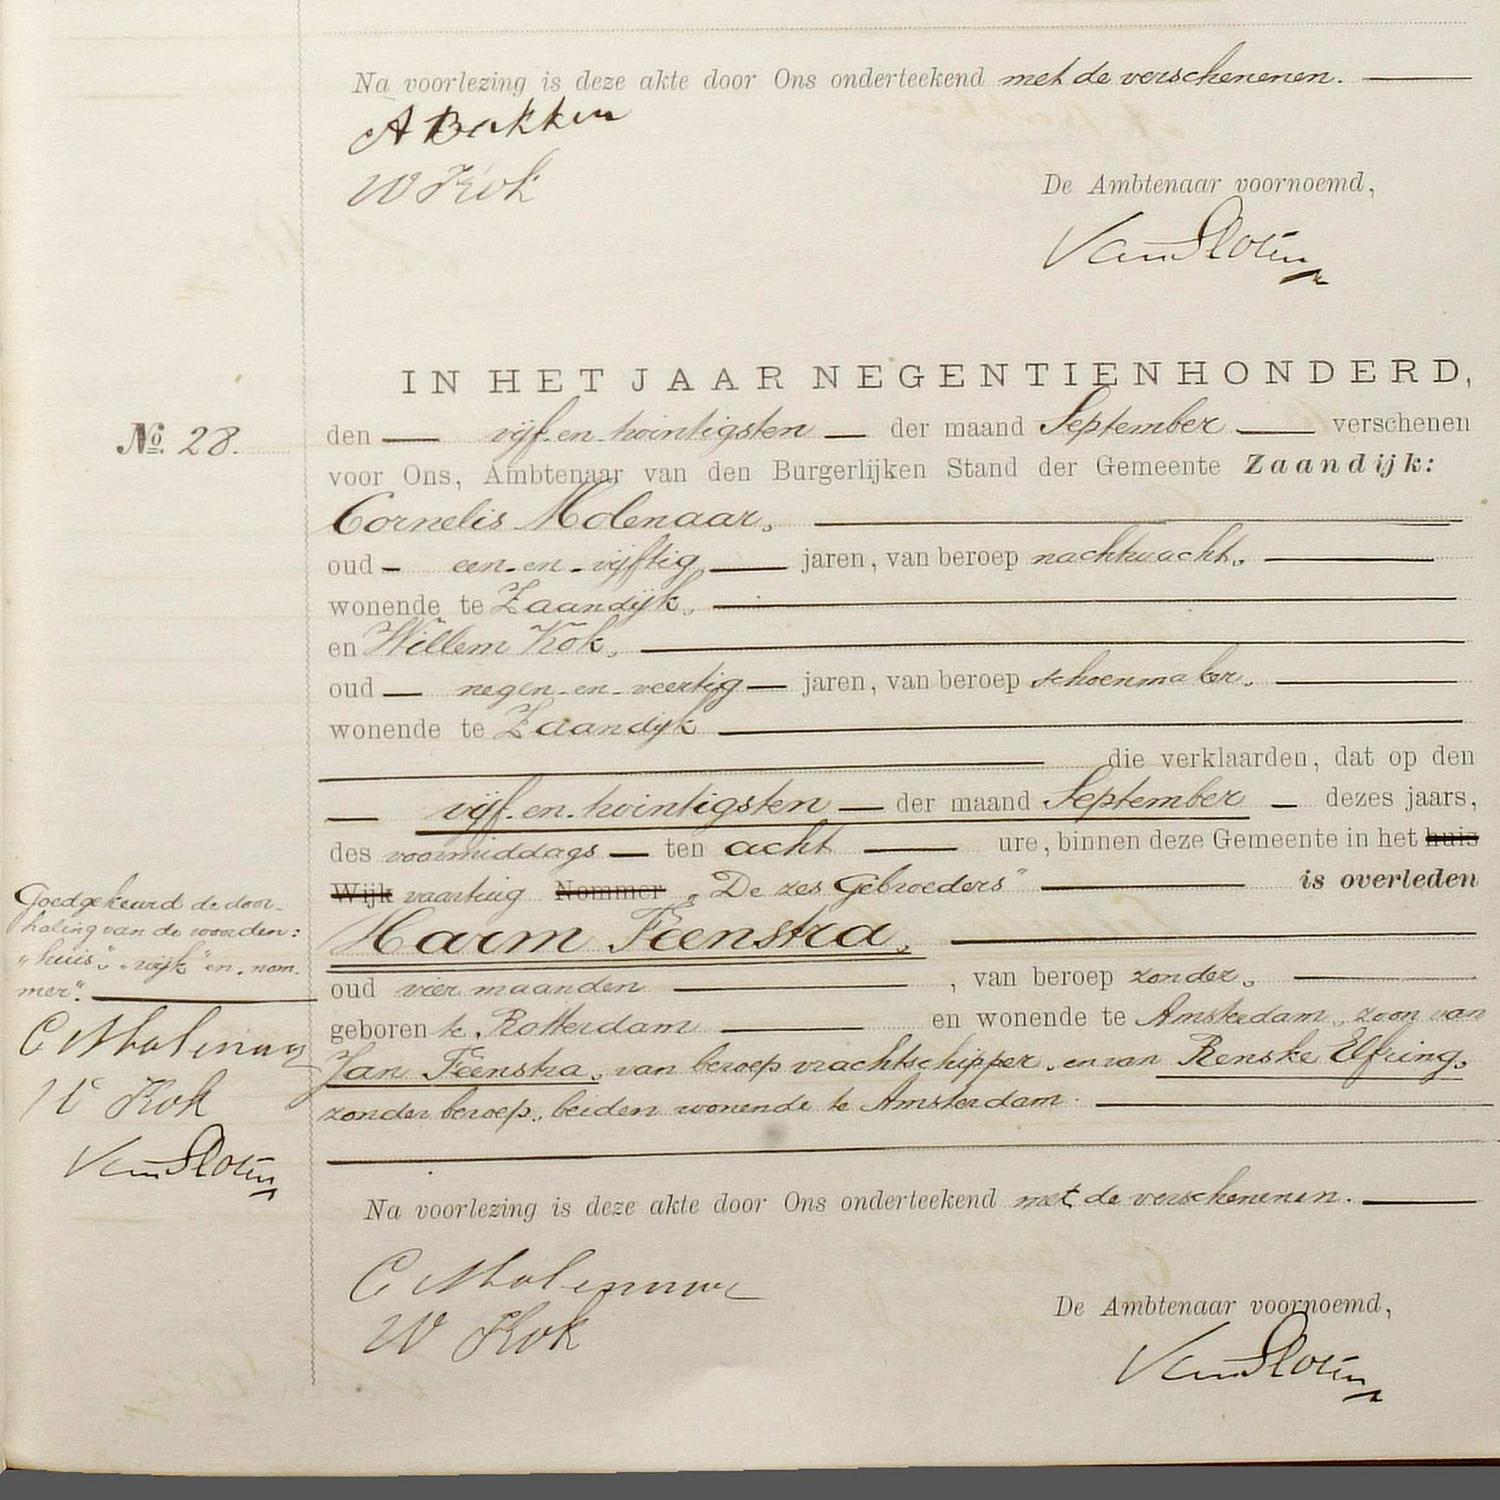 Na voorlezing is deze akte door Ons onderteekend met de verschenenen.
A Bakker
W Kok
De Ambtenaar voornoemd,
Van Sloten
IN HET JAAR NEGENTIENHONDERD,
No. 28.
den vijf-en-twintigsten der maand September verschenen
voor Ons, Ambtenaar van den Burgerlijken Stand der Gemeente Zaandijk:
Cornelis Molenaar,
oud een-en-vijftig jaren, van beroep nachtwacht,
wonende te Zaandijk,
en Willem Kok,
oud negen-en-veertig jaren, van beroep schoenmaker,
wonende te Zaandijk
die verklaarden, dat op den
vijf-en-twintigsten der maand September dezes jaars,
des voormiddags ten acht ure, binnen deze Gemeente in het huis
Wijk vaartuig Nommer „De zes Gebroeders" is overleden
Harm Feenstra,
oud vier maanden, van beroep zonder,
geboren te Rotterdam en wonende te Amsterdam, zoon van
Jan Feenstra, van beroep vrachtschipper, en van Renske Elfring,
zonder beroep, beiden wonende te Amsterdam.
Goedgekeurd de door-
haling van de woorden:
„huis", „wijk" en „nom-
mer".
C Molenaar
W Kok
Van Sloten
Na voorlezing is deze akte door Ons onderteekend met de verschenenen.
C Molenaar
W Kok
De Ambtenaar voornoemd,
Van Sloten